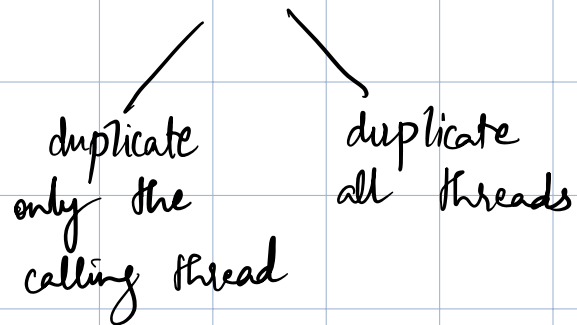 duplicate
only the
calling thread
duplicate
all threads